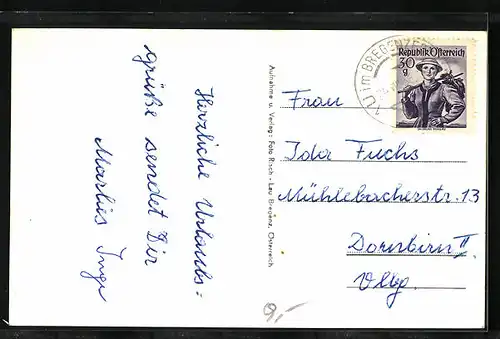 Herzliche Urlaubs-
grüße sendet Dir
Marlies Inge
Aufnahme u. Verlag: Foto Risch - Lau Bregenz, Österreich
AU im BREGENZER
Republik Österreich
30
g
Frau
Ida Fuchs
Mühlebacherstr. 13
Dornbirn II
Vlbg.
9,-